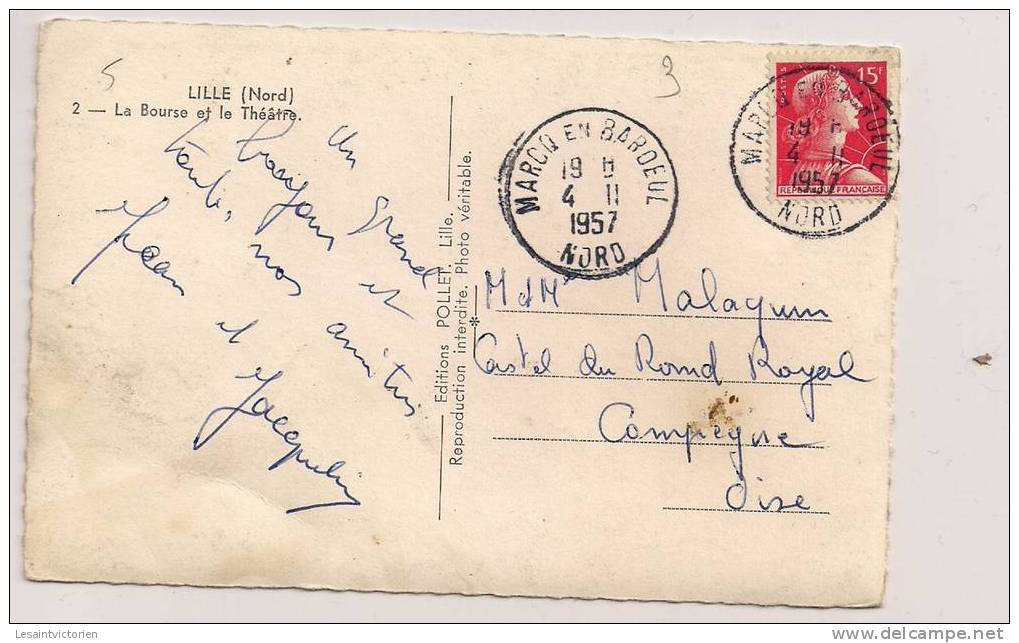 5
3
LILLE (Nord)
2 — La Bourse et le Théâtre.
Un grand
et
tante, nos amitiés
Jean et Jacqueline
Editions POLLET. Lille.
Reproduction interdite. Photo véritable.
*
MARCQ EN BAROEUL
19 H
4 11
1957
NORD
POSTES
15F
REPUBLIQUE FRANÇAISE
MARCQ EN BAROEUL
19 H
4 11
1957
NORD
M et Me Malaqum
Castel du Rond Royal
Compiegne
Oise
Lesaintvictorien
delcampe.net